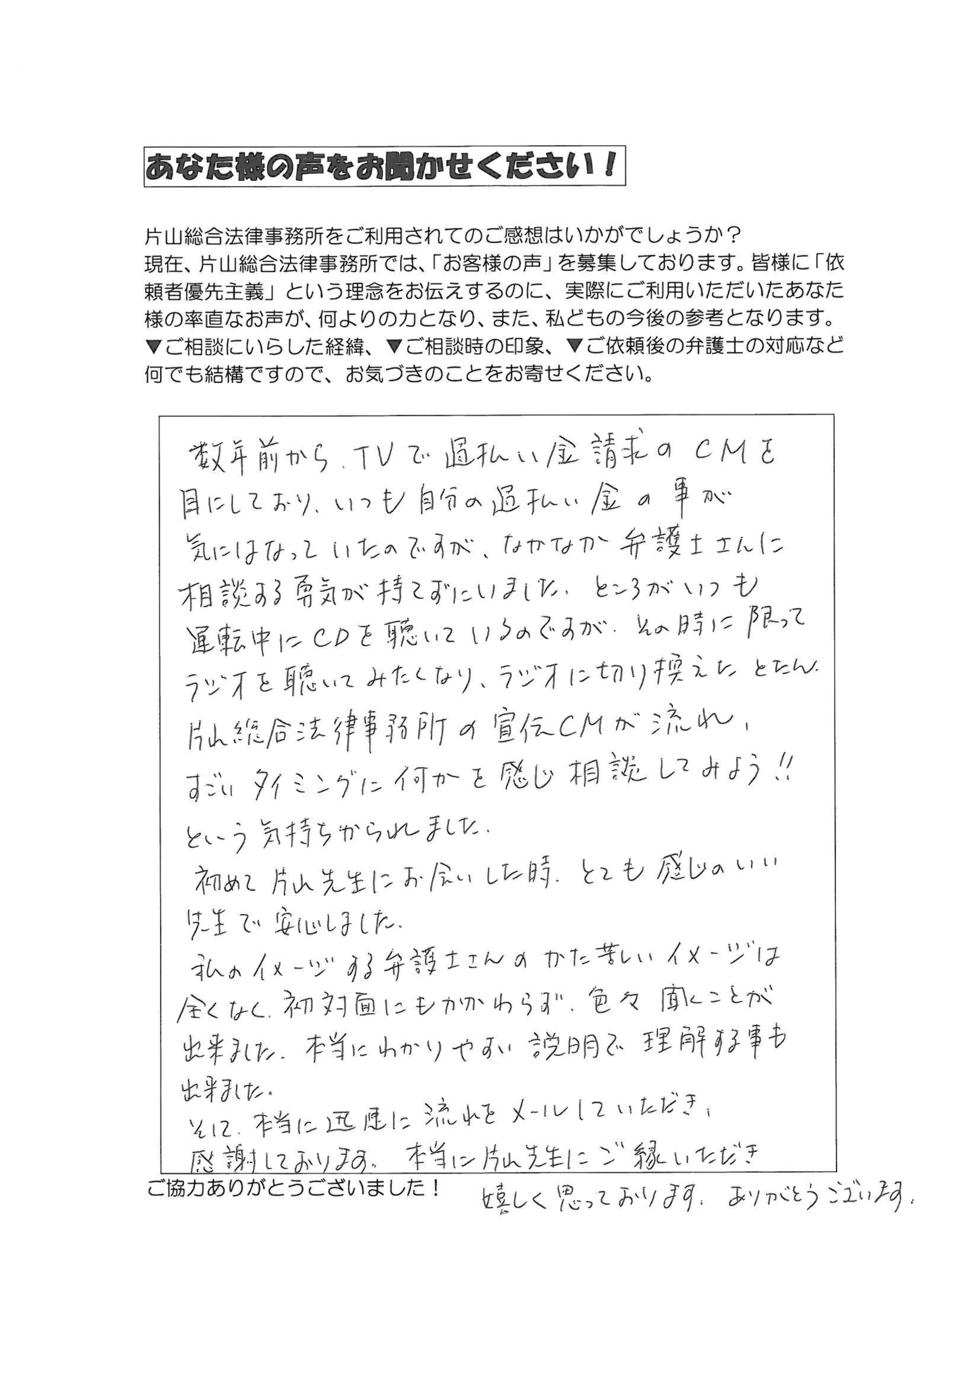 あなた様の声をお聞かせください！
片山総合法律事務所をご利用されてのご感想はいかがでしょうか？
現在、片山総合法律事務所では、「お客様の声」を募集しております。皆様に「依
頼者優先主義」という理念をお伝えするのに、実際にご利用いただいたあなた
様の率直なお声が、何よりの力となり、また、私どもの今後の参考となります。
▼ご相談にいらした経緯、▼ご相談時の印象、▼ご依頼後の弁護士の対応など
何でも結構ですので、お気づきのことをお寄せください。
数年前から、TVで過払い金請求のCMを
目にしており、いつも自分の過払い金の事が
気にはなっていたのですが、なかなか弁護士さんに
相談する勇気が持てずにいました。ところがいつも
運転中にCDを聴いているのですが、その時に限って
ラジオを聴いてみたくなり、ラジオに切り換えたとたん、
片山総合法律事務所の宣伝CMが流れ、
すごいタイミングに何かを感じ相談してみよう!!
という気持ちかられました。
初めて片山先生にお会いした時、とても感じのいい
先生で安心しました。
私のイメージする弁護士さんのかた苦しいイメージは
全くなく、初対面にもかかわらず、色々聞くことが
出来ました。本当にわかりやすい説明で理解する事も
出来ました。
そして、本当に迅速に流れをメールしていただき、
感謝しております。本当に片山先生にご縁いただき
ご協力ありがとうございました！
嬉しく思っております。ありがとうございます。